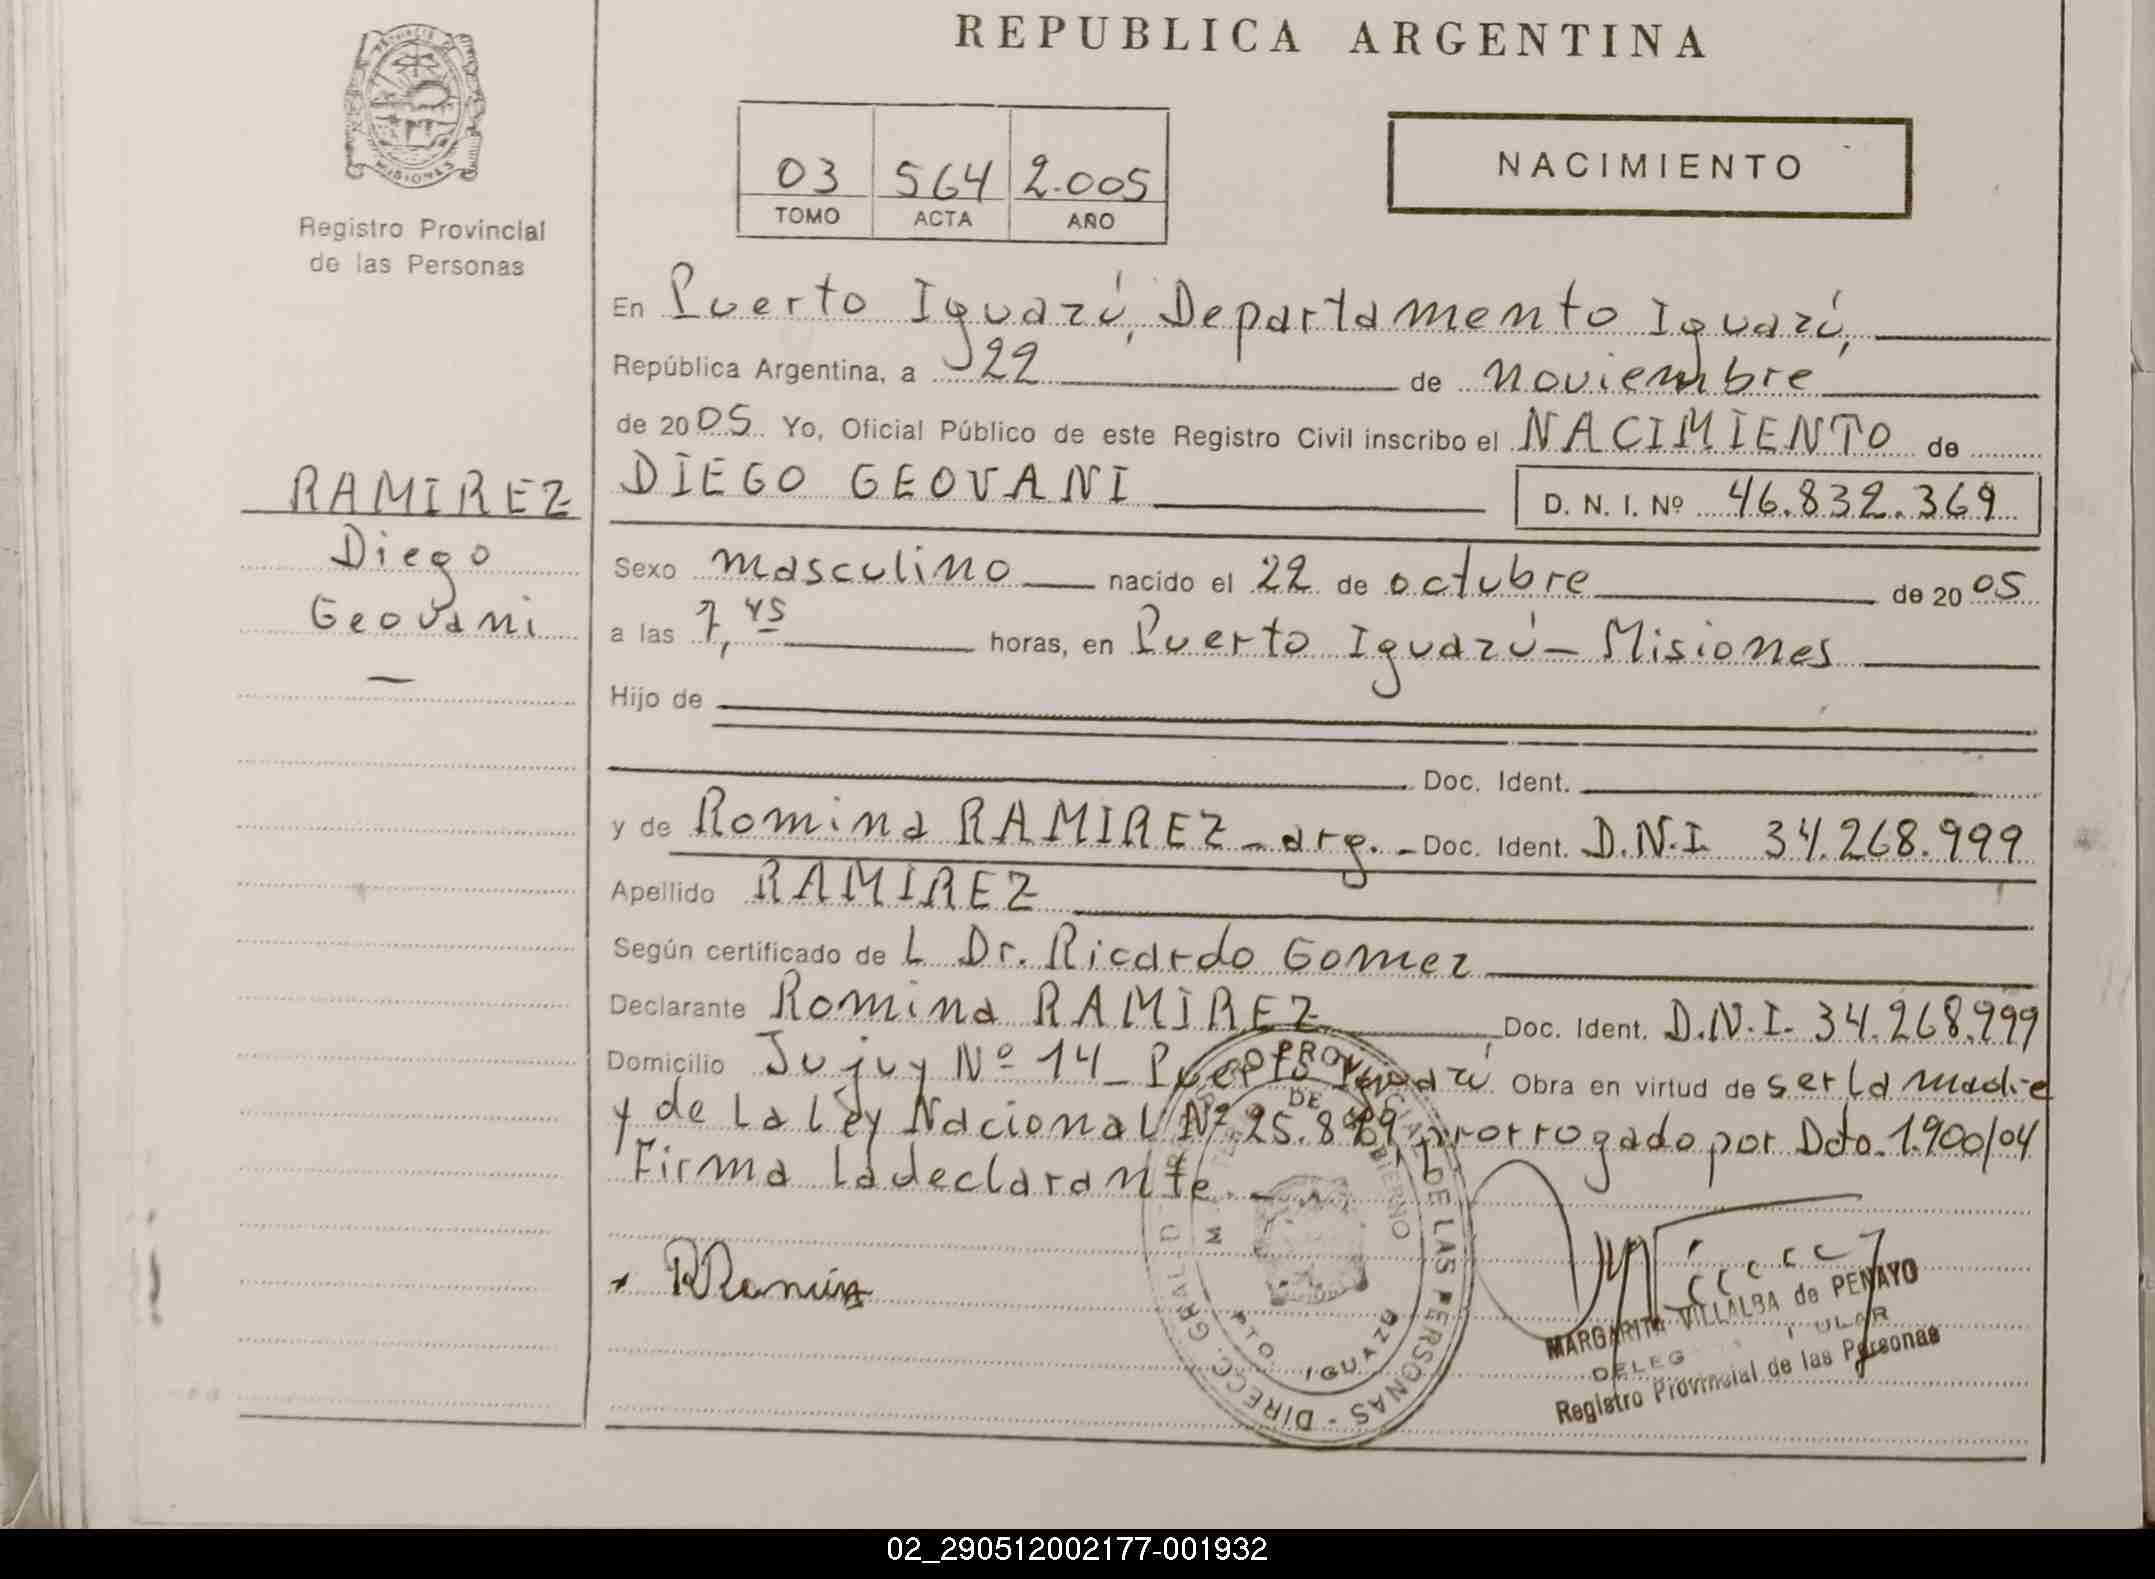 REPUBLICA ARGENTINA
PROVINCIA DE
MISIONES
Registro Provincial
de las Personas
03 564 2.005
TOMO ACTA AÑO
NACIMIENTO
En Puerto Iguazú, Departamento Iguazú,
República Argentina, a 22 de noviembre
de 2005 Yo, Oficial Público de este Registro Civil inscribo el NACIMIENTO de
DIEGO GEOVANI D. N. I. Nº 46.832.369
RAMIREZ
Diego
Geovani
Sexo masculino nacido el 22 de octubre de 2005
a las 7,45 horas, en Puerto Iguazú - Misiones
Hijo de
Doc. Ident.
y de Romina RAMIREZ - arg. - Doc. Ident. D.N.I. 34.268.999
Apellido RAMIREZ
Según certificado de L Dr. Ricardo Gomez
Declarante Romina RAMIREZ Doc. Ident. D.N.I. 34.268.999
Domicilio Jujuy Nº 14 - Puerto Iguazú Obra en virtud de ser la madre
y de La Ley Nacional Nº 25.819, prorrogado por Dto. 1.900/04
Firma la declarante. -
DIRECC. GRAL. D PROVINCIAL DE LAS PERSONAS
DE GOBIERNO
PTO. IGUAZU
MARGARITA VILLALBA de PENAYO
DELEG TULAR
Registro Provincial de las Personas
02_290512002177-001932